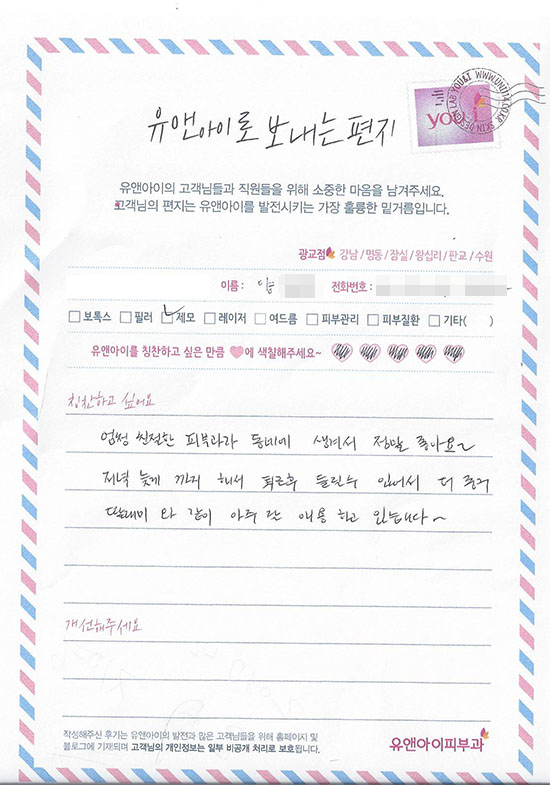 WWW.UNI114.CO.KR SKIN DESIGN LAB YOU&I
you i
유앤아이로 보내는 편지
유앤아이의 고객님들과 직원들을 위해 소중한 마음을 남겨주세요.
고객님의 편지는 유앤아이를 발전시키는 가장 훌륭한 밑거름입니다.
광교점 강남/명동/잠실/왕십리/판교/수원
이름: 전화번호:
보톡스 필러 제모 레이저 여드름 피부관리 피부질환 기타( )
유앤아이를 칭찬하고 싶은 만큼 에 색칠해주세요~
칭찬하고 싶어요
엄청 친절한 피부과라 동네에 생겨서 정말 좋아요~
저녁 늦게 까지 해서 퇴근후 들릴수 있어서 더 좋구
딸래미 와 같이 아주 잘 애용 하고 있습니다~
개선해주세요
작성해주신 후기는 유앤아이의 발전과 많은 고객님들을 위해 홈페이지 및
블로그에 기재되며 고객님의 개인정보는 일부 비공개 처리로 보호됩니다.
유앤아이피부과